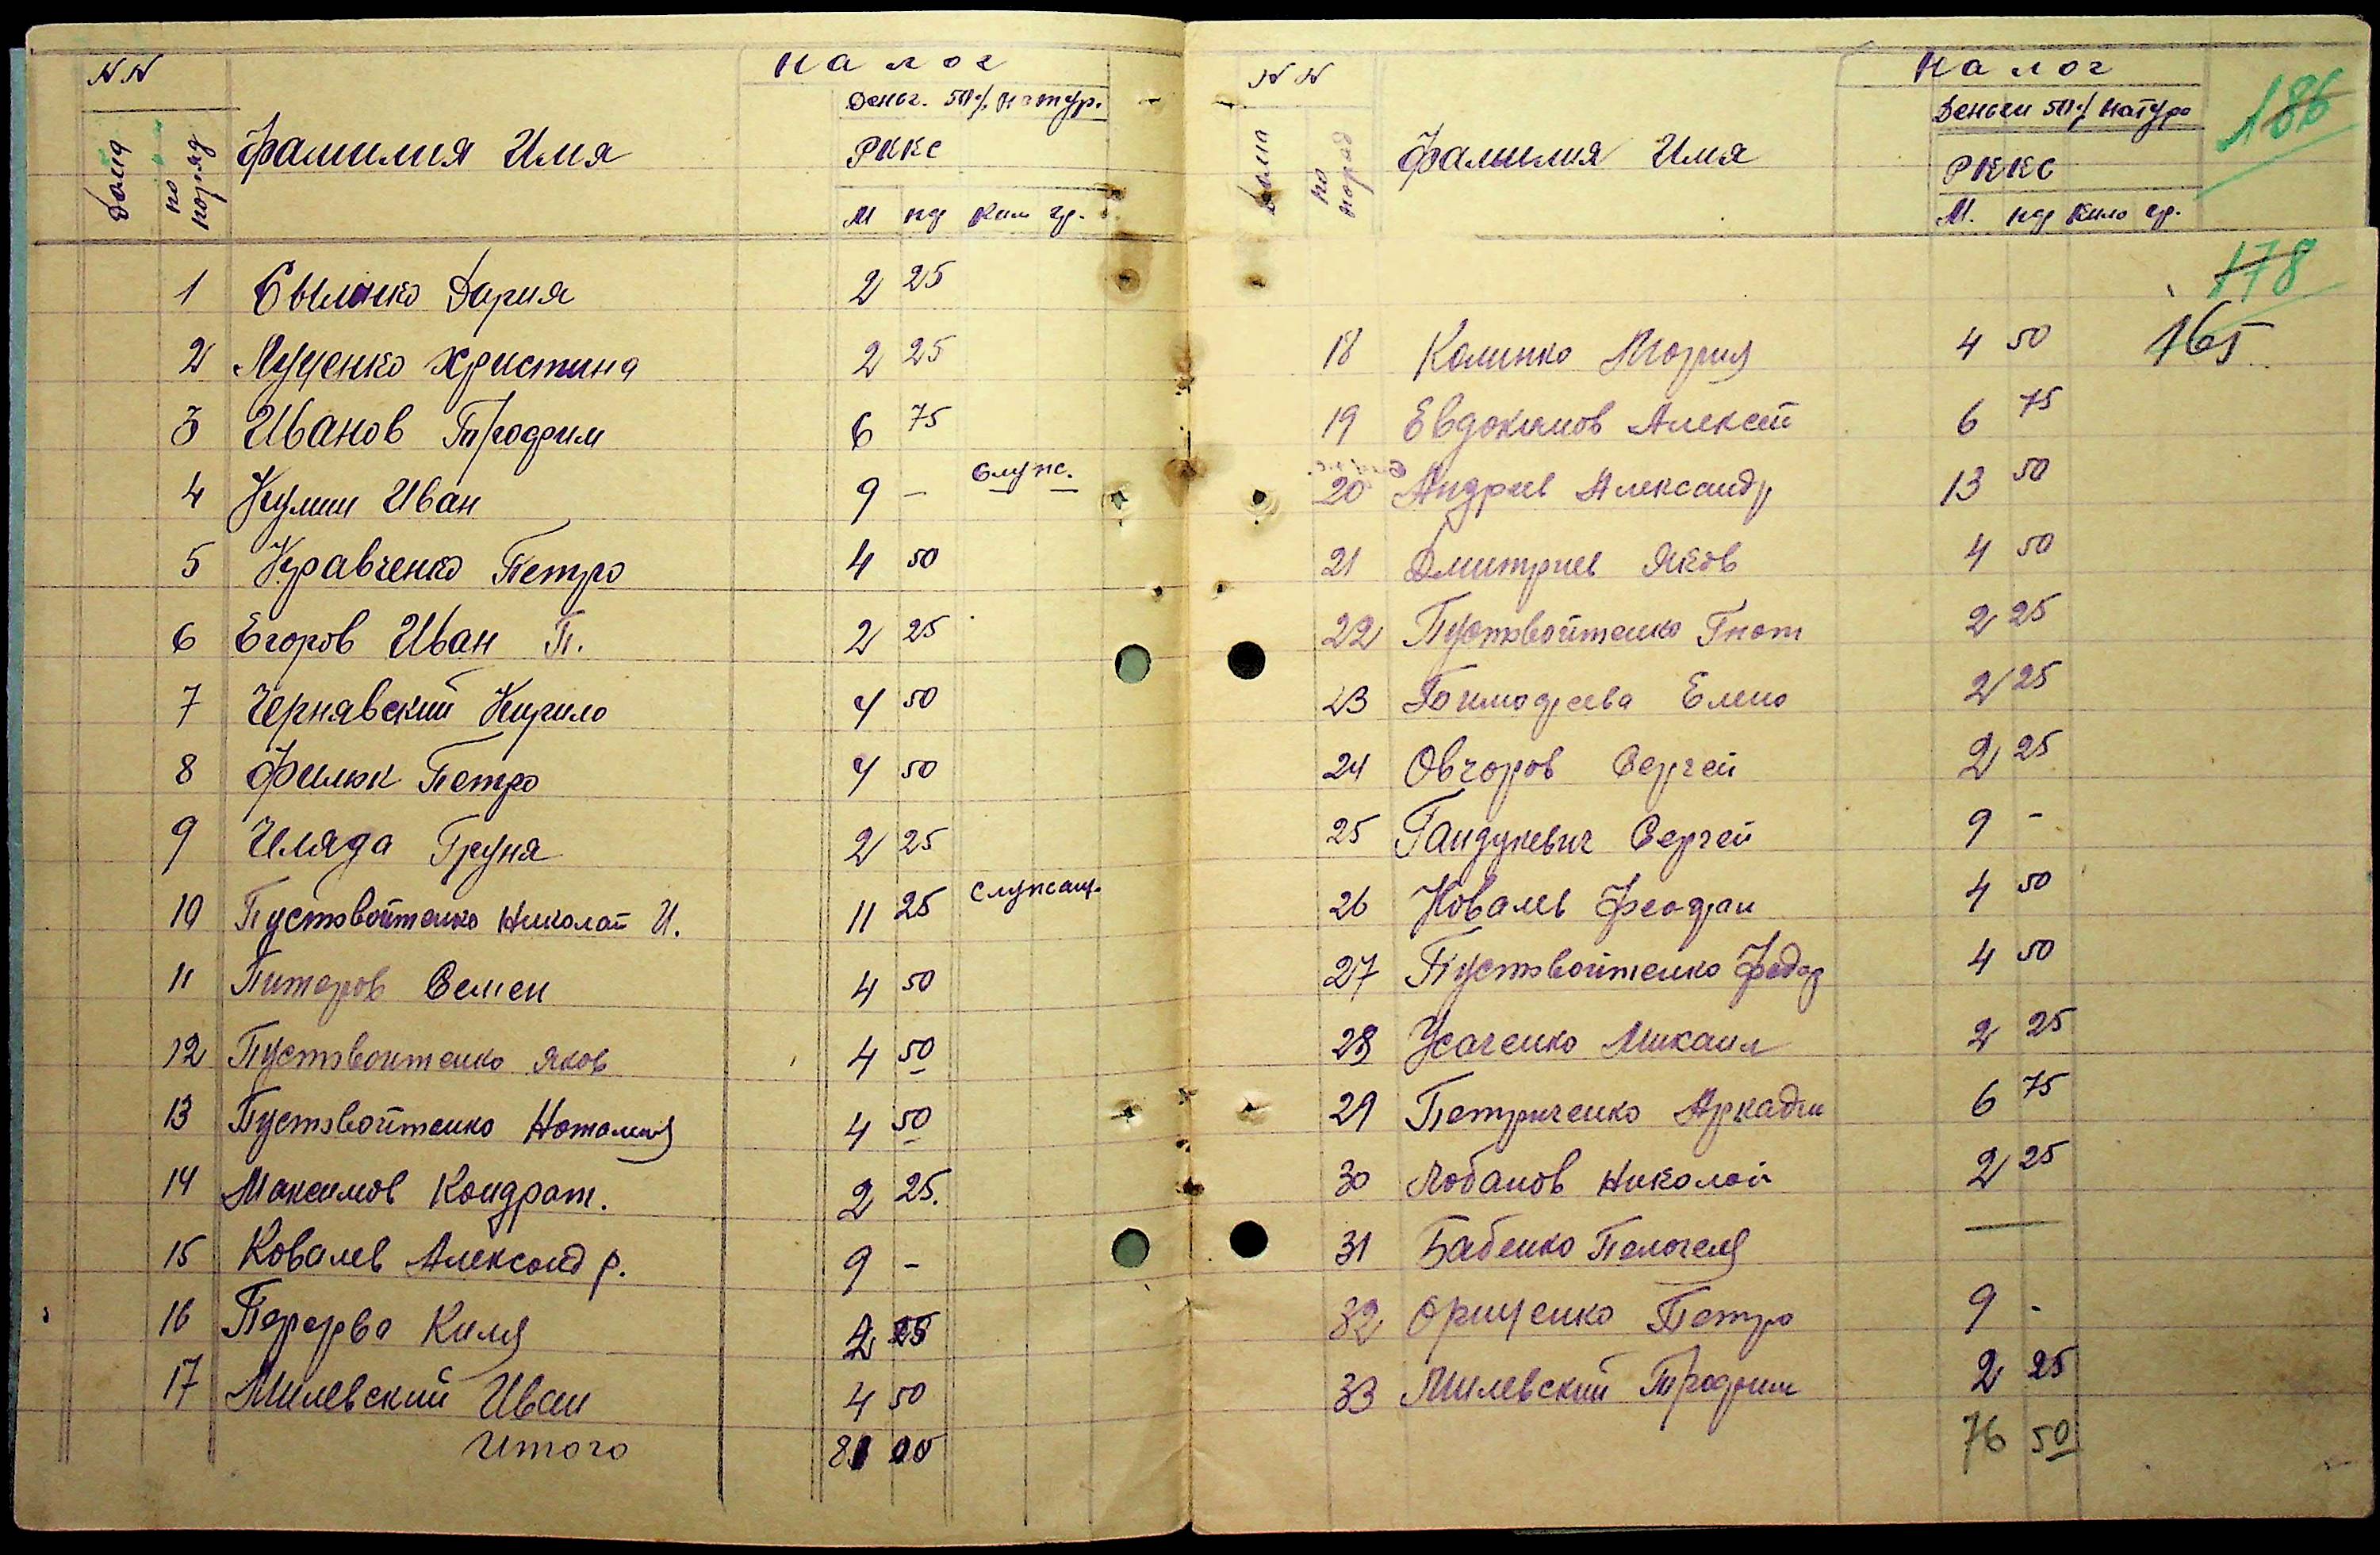 NN
Налог
Двора
по поряд
Фамилия Имя
Деньг. 50% натур.
РККС
М пф Кило гр.
1 Свиленко Дария 2 25
2 Луценко Христина 2 25
3 Иванов Трофим 6 75
4 Кулиш Иван 9 – Служ.
5 Кравченко Петро 4 50
6 Егоров Иван П. 2 25
7 Чернявский Кирило 4 50
8 Филюк Петро 4 50
9 Иляда Груня 2 25
10 Пустовойтенко Николай И. 11 25 Служащ.
11 Питеров Семен 4 50
12 Пустовойтенко Яков 4 50
13 Пустовойтенко Наталия 4 50
14 Максимов Кондрат. 2 25.
15 Ковалев Александр. 9 –
16 Перерва Киля 2 25
17 Милевский Иван 4 50
Итого 81 00
NN
Налог
по поряд
Фамилия Имя
Деньги 50% натуро
РККС
М. пф Кило гр.
186
178
165
18 Калинко Мория 4 50
19 Евдокимов Алексей 6 75
20 Андреев Александр 13 50
21 Дмитриев Яков 4 50
22 Пустовойтенко Гнат 2 25
23 Елена 2 25
24 Овчоров Сергей 2 25
25 Гандукевич Сергей 9 –
26 Ковалев Феофан 4 50
27 Пустовойтенко Федор 4 50
28 Усаченко Михаил 2 25
29 Петриченко Аркадии 6 75
30 Лобанов Николай 2 25
31 Бабенко Пелагея —
32 Орищенко Петро 9 -
33 Милевский Трофим 2 25
76 50